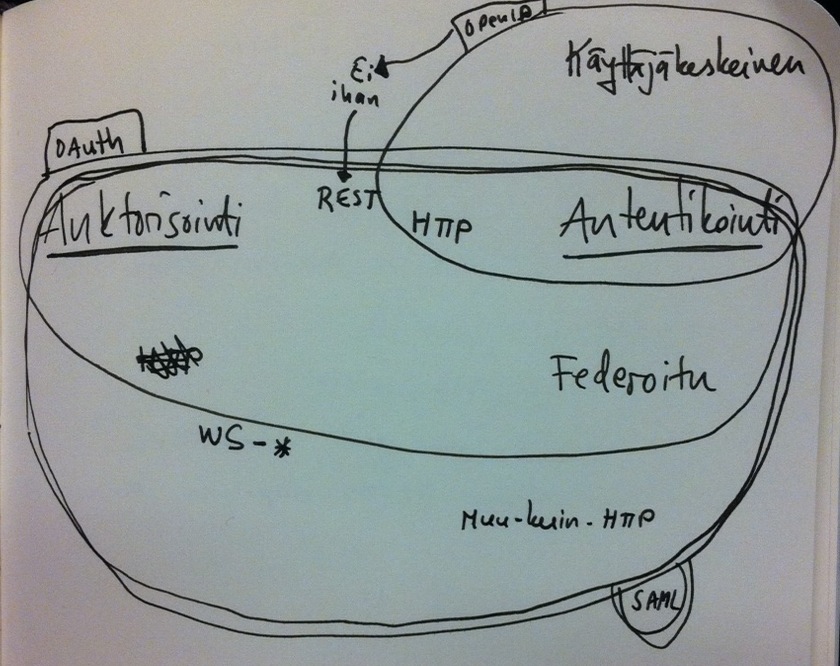 OpenID
Käyttäjäkeskeinen
Ei
ihan
OAuth
REST
Auktorisointi
HTTP
Autentikointi
Federoitu
WS-*
Muu-kuin-HTTP
SAML